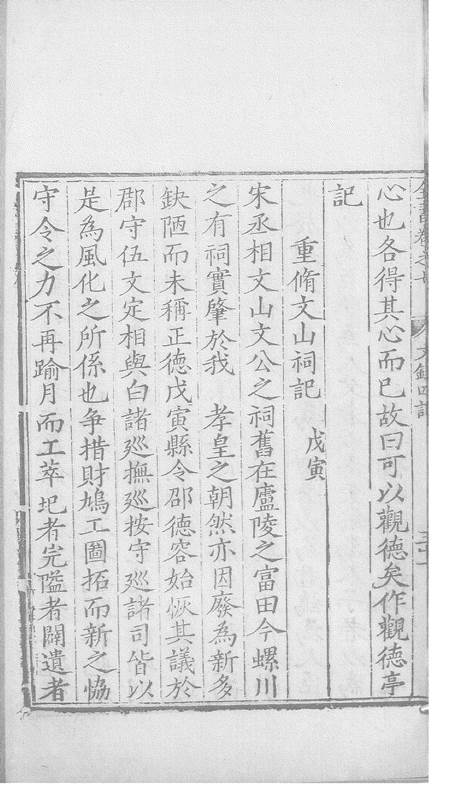 心也各得其心而已故曰可以觀德矣作觀德亭
記
重脩文山祠記 戊寅
宋丞相文山文公之祠舊在廬陵之富田今螺川
之有祠實肇於我 孝皇之朝然亦因廢為新多
缺陋而未稱正德戊寅縣令邵德容始恢其議於
郡守伍文定相與白諸巡撫巡按守巡諸司皆以
是為風化之所係也争措財鳩工圖拓而新之恊
守令之力不再踰月而工萃圯者完隘者闢遺者